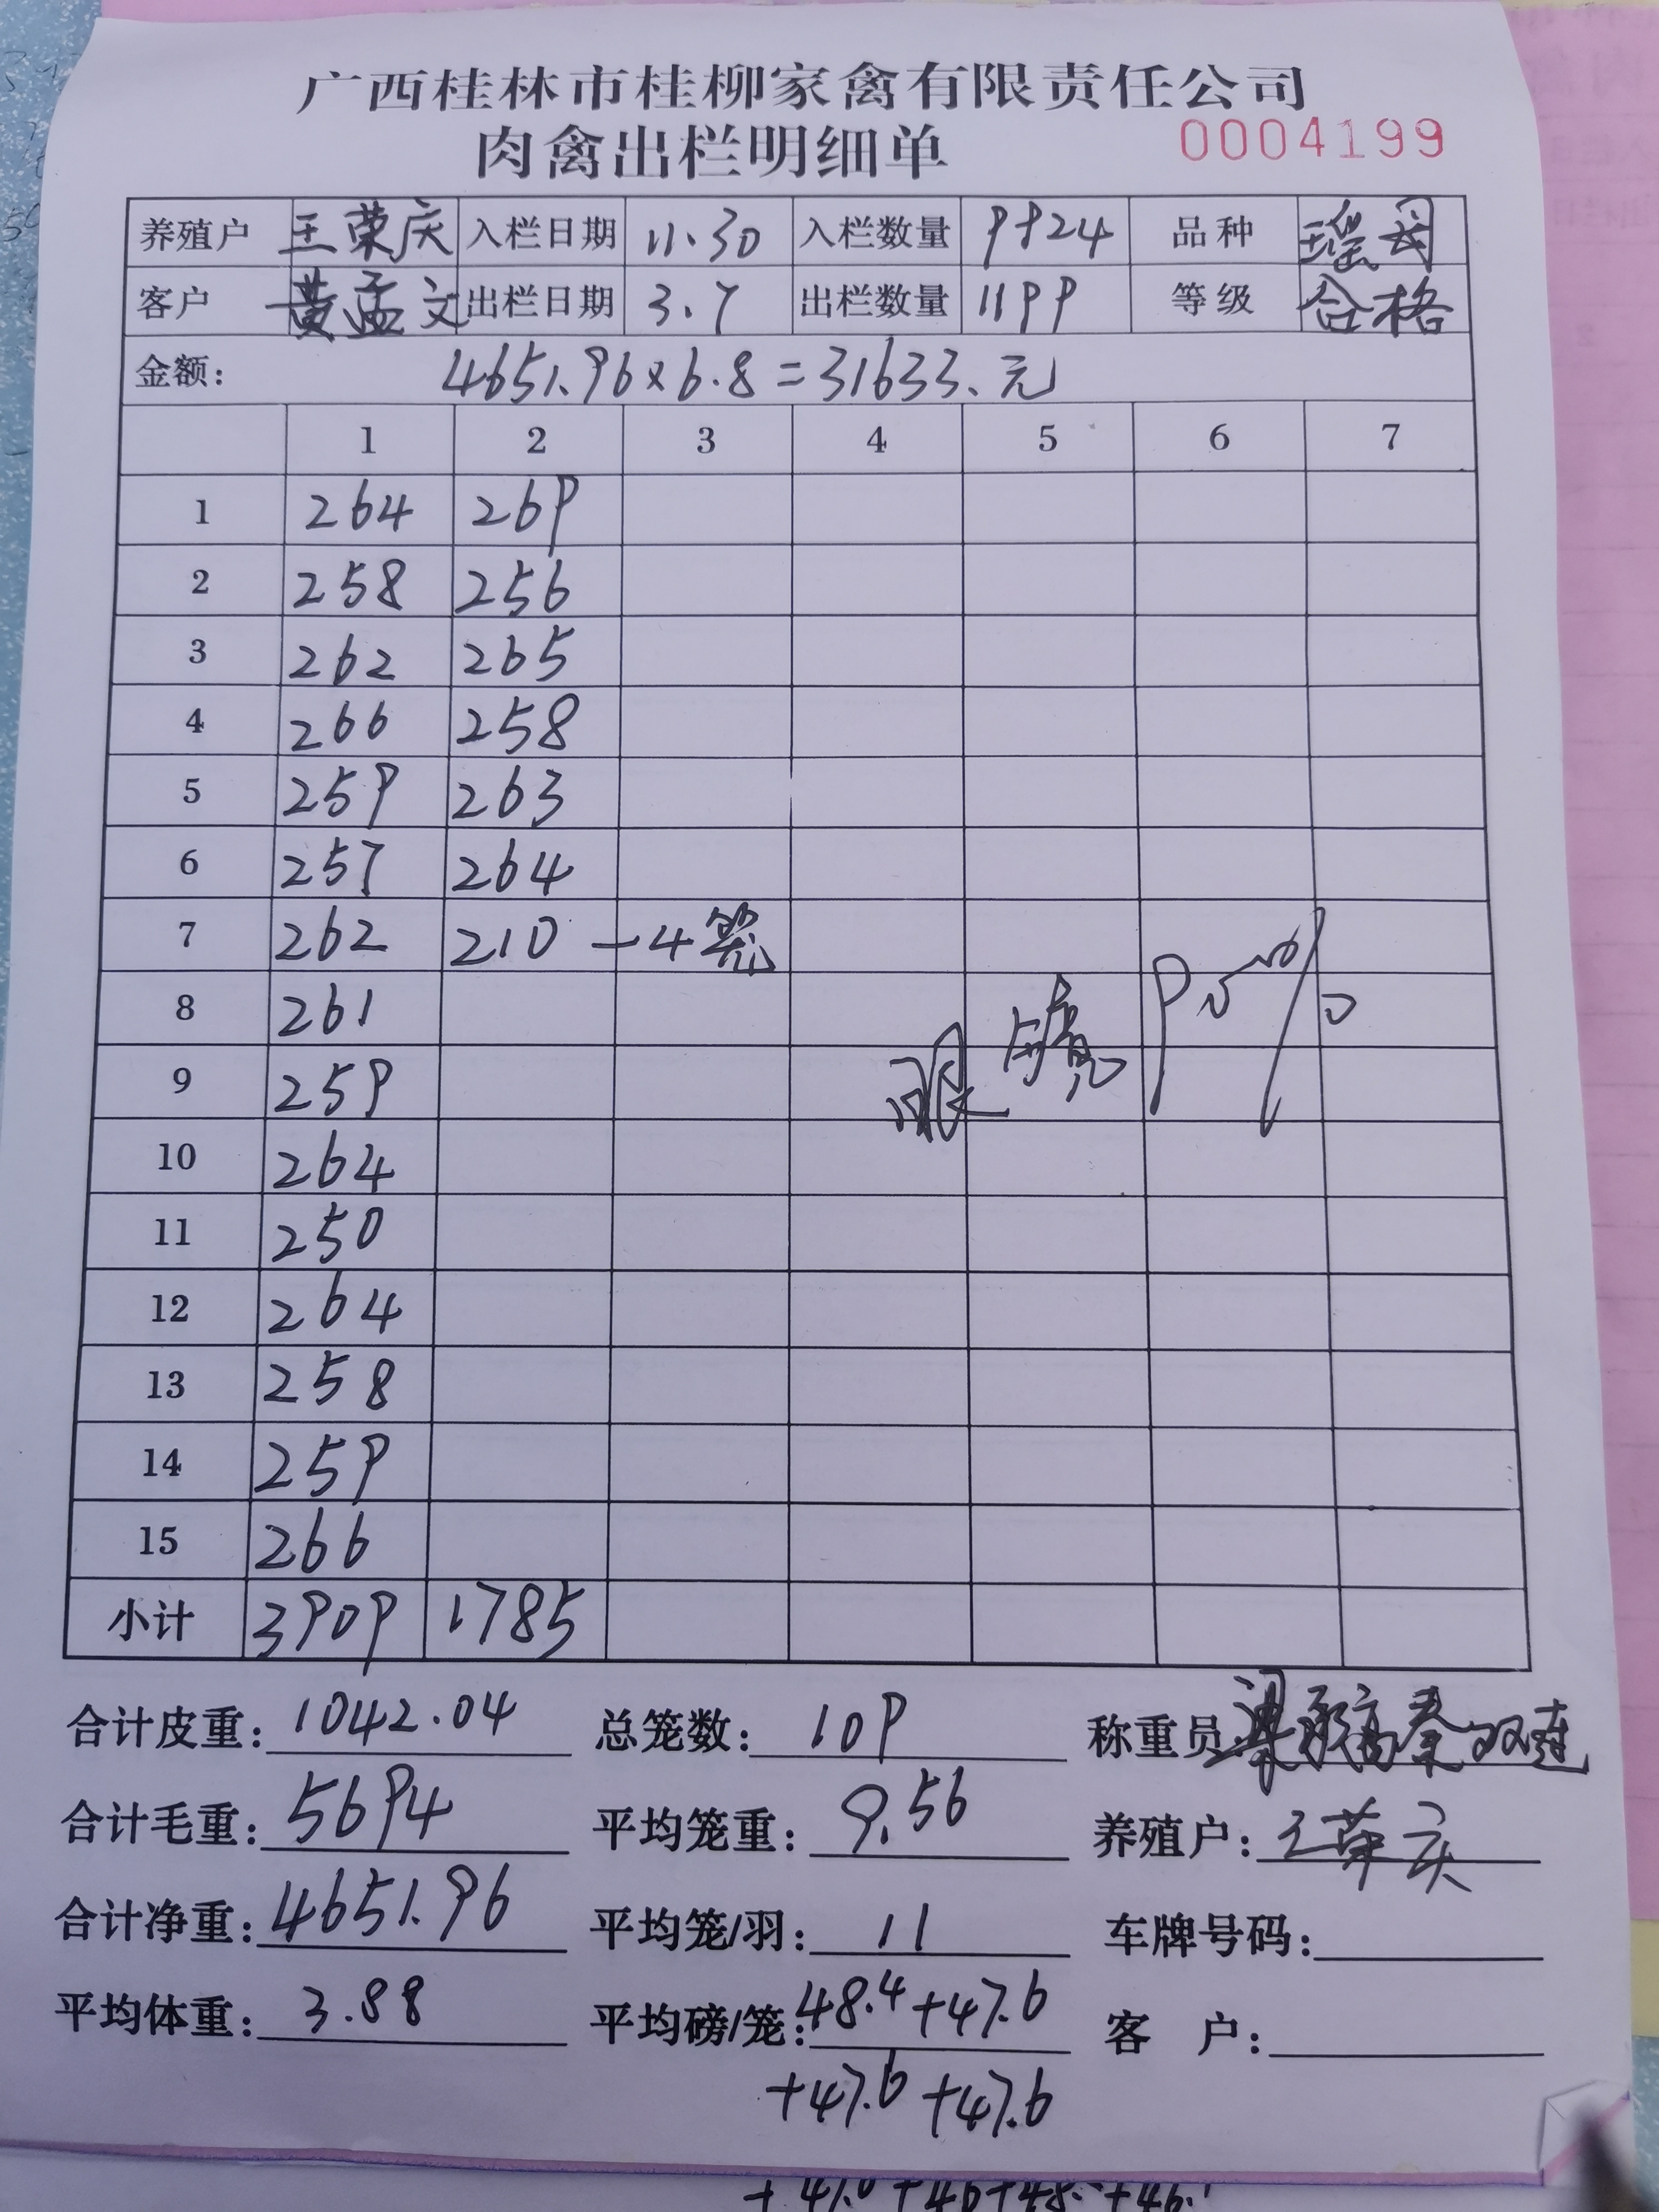 广西桂林市桂柳家禽有限责任公司
肉禽出栏明细单 0004199
养殖户 王荣庆 入栏日期 11.30 入栏数量 9824 品种 瑶母
客户 黄孟文 出栏日期 3.7 出栏数量 1199 等级 合格
金额: 4651.96×6.8=31633.元
1 2 3 4 5 6 7
1 264 269
2 258 256
3 262 265
4 266 258
5 259 263
6 257 264
7 262 210 -4笼
8 261
9 259
10 264
11 250
12 264
13 258
14 259
15 266
眼镜95%
小计 3909 1785
合计皮重: 1042.04 总笼数: 109 称重员 秦双连
合计毛重: 5694 平均笼重: 9.56 养殖户: 王荣庆
合计净重: 4651.96 平均笼/羽: 11 车牌号码:
平均体重: 3.88 平均磅/笼: 48.4+47.6 客 户:
+47.6+47.6